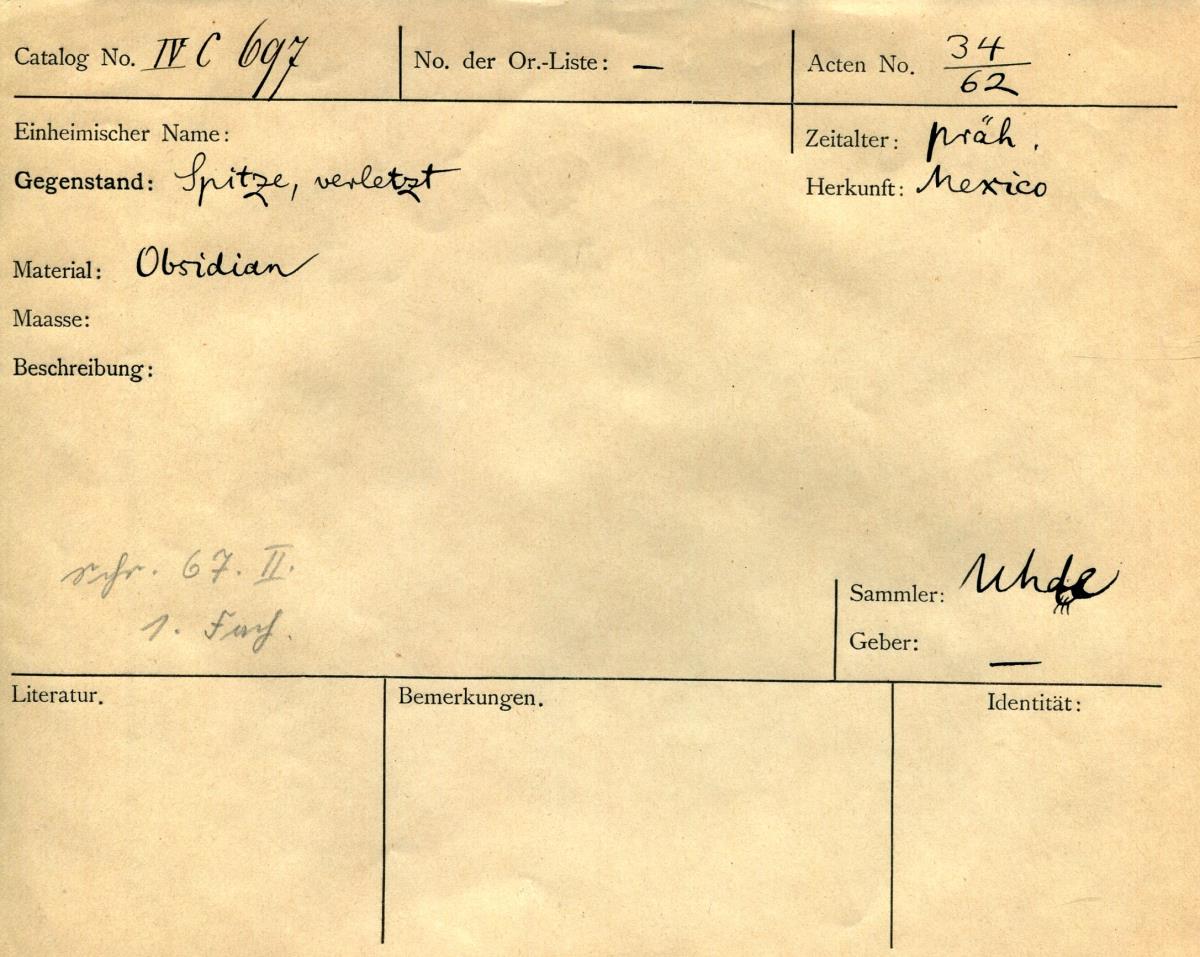 Catalog No. IV C 697 No. der Or.-Liste: — Acten No. 34/62
Einheimischer Name: Zeitalter: präh.
Gegenstand: Spitze, verletzt Herkunft: Mexico
Material: Obsidian
Maasse:
Beschreibung:
schr. 67. II.
1. Fach.
Sammler: Uhde
Geber: —
Literatur. Bemerkungen. Identität: